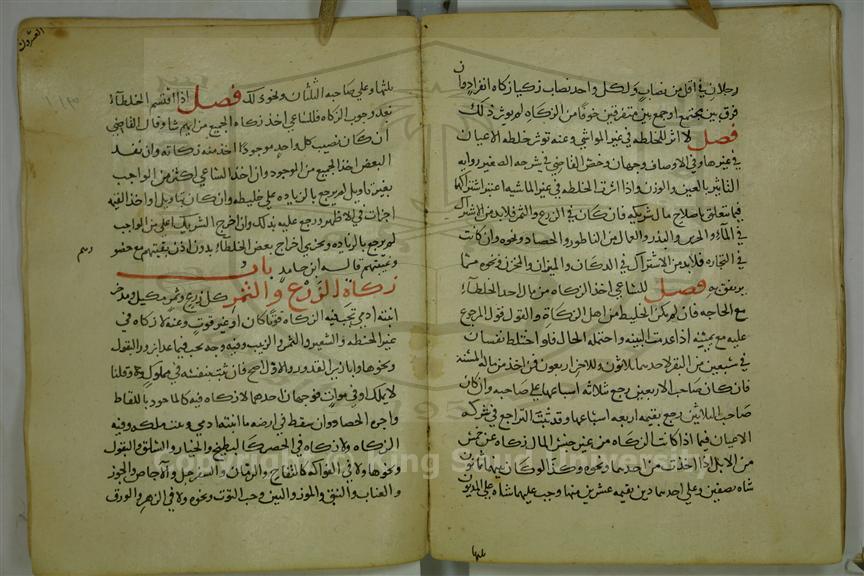 رجلان في اقل من نصاب ولكل واحد نصاب زكيا زكاه انفراد وان
فرق بين مجتمع او جمع بين متفرقين خوفا من الزكاه لم يوثر ذلك
فصل لا اثر للخلطه في غير المواشي وعنه توثر خلطه الاعيان
في غيرها وفي الاوصاف وجهان وخص القاضي في شرحه الصغير روايه
التاثير بالعين والوزن واذا اثرت الخلطه في غير الماشيه اعتبر اشتراكهما
فيما يتعلق باصلاح مال الشركه فان كان في الزرع والثمر فلابد من الاشتراك
في المآء والحرث والبذر والعمال من الناطور والحصاد ونحوه وان كانت
في التجاره فلابد من الاشتراك في الدكان والميزان والمخزن ونحوه مما
يرتفق به فصل للساعي اخذ الزكاه من مال احد الخلطآء
مع الحاجه فان لم يكن الخليط من اهل الزكاة والقول قول المرجوع
عليه مع يمينه اذا عدمت البينه واحتمله الحال فلو اختلط نفسان
في سبعين من البقر لاحدهما ثلاثون وللاخر اربعون فن اخذ من ماله المسنه
فان كان صاحب الاربعين رجع ثلاثة اسباعها على صاحبه وان كان
صاحب الثلاثين رجع بقيمه اربعه اسباعها وقد ثبت التراجع في شركه
الاعيان فيما اذا كانت الزكاه من غير جنس المال زكاه عن خمس
من الابل اذا اخذت من احدهما ونحوه وكذا لو كان بينهما ثمانون
شاه نصفين وعلى احدهما دين بقيمه عشرين منها وجب عليهما شاه على المديون
ثلثها
ثلثها وعلى صاحبه الثلثان ونحو ذلك فصل اذا اقتسم الخلطآء
بعد وجوب الزكاه فللساعي اخذ زكاه الجميع من ايهم شا وقال القاضي
ان كان نصيب كل واحد موجودا اخذ منه زكاته وان فقد
البعض اخذ الجميع من الموجود وان اخذ الساعي اكثر من الواجب
بغير تاويل لم يرجع بالزياده على خليطه وان كان بتاويل او اخذ القيمه
اجزات في الاظهر ورجع عليه بذلك وان اخرج الشريك اعلى من الواجب
لم يرجع بالزياده ويجزي اخراج بعض الخلطآء بدون اذن بقيتهم مع حضورهم
وغيبتهم قاله ابن حامد باب
زكاة الزرع والثمر كل زرع وثمر مكيل ومدخر
انبته ادمي تجب فيه الزكاه قوتا كان او غير قوت وعنه لا زكاه في
غير الحنطه والشعير والتمر والزبيب وفيه وجه يجب فيما عدا بزور البقول
ونحوها وابازير القدور والاول اصح فان نبت بنفسه في مملوك وقلنا
لا يملك او في موات فوجهان احدهما لا زكاه فيه كالماخوذ باللقاط
واجره الحصاد وان سقط في ارضه ما انبته ادمي وعنده ملكه وفيه
الزكاه ولا زكاه في الخضر كالبطيخ والخيار والشلق والبقول
ونحوها ولا في الفواكه كالتفاح والرمان والسفرجل والاجاص والجوز
والعناب والنبق والموز والتين وحب التوت ونحوه ولا في الزهر والورق
Copyright © King Saud University
1957